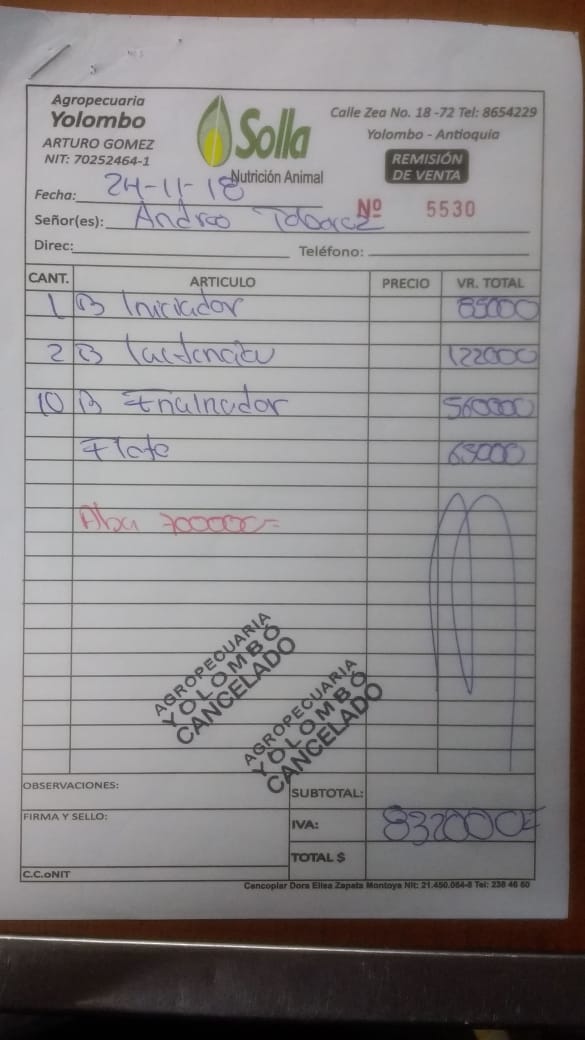 Agropecuaria
Yolombo
ARTURO GOMEZ
NIT: 70252464-1
Solla
Nutrición Animal
Calle Zea No. 18 -72 Tel: 8654229
Yolombo - Antioquia
REMISIÓN
DE VENTA
Fecha: 24-11-18
Nº 5530
Señor(es):
Direc: Teléfono:
CANT. ARTICULO PRECIO VR. TOTAL
1 B Iniciador 85000
2 B 122000
10 B 560000
Flete 65000
700000=
AGROPECUARIA
YOLOMBÓ
CANCELADO
AGROPECUARIA
YOLOMBÓ
CANCELADO
OBSERVACIONES:
SUBTOTAL:
FIRMA Y SELLO:
IVA: 832000=
TOTAL $
C.C.oNIT
Cencoplar Dora Elisa Zapata Montoya Nit: 21.450.064-8 Tel: 238 46 60